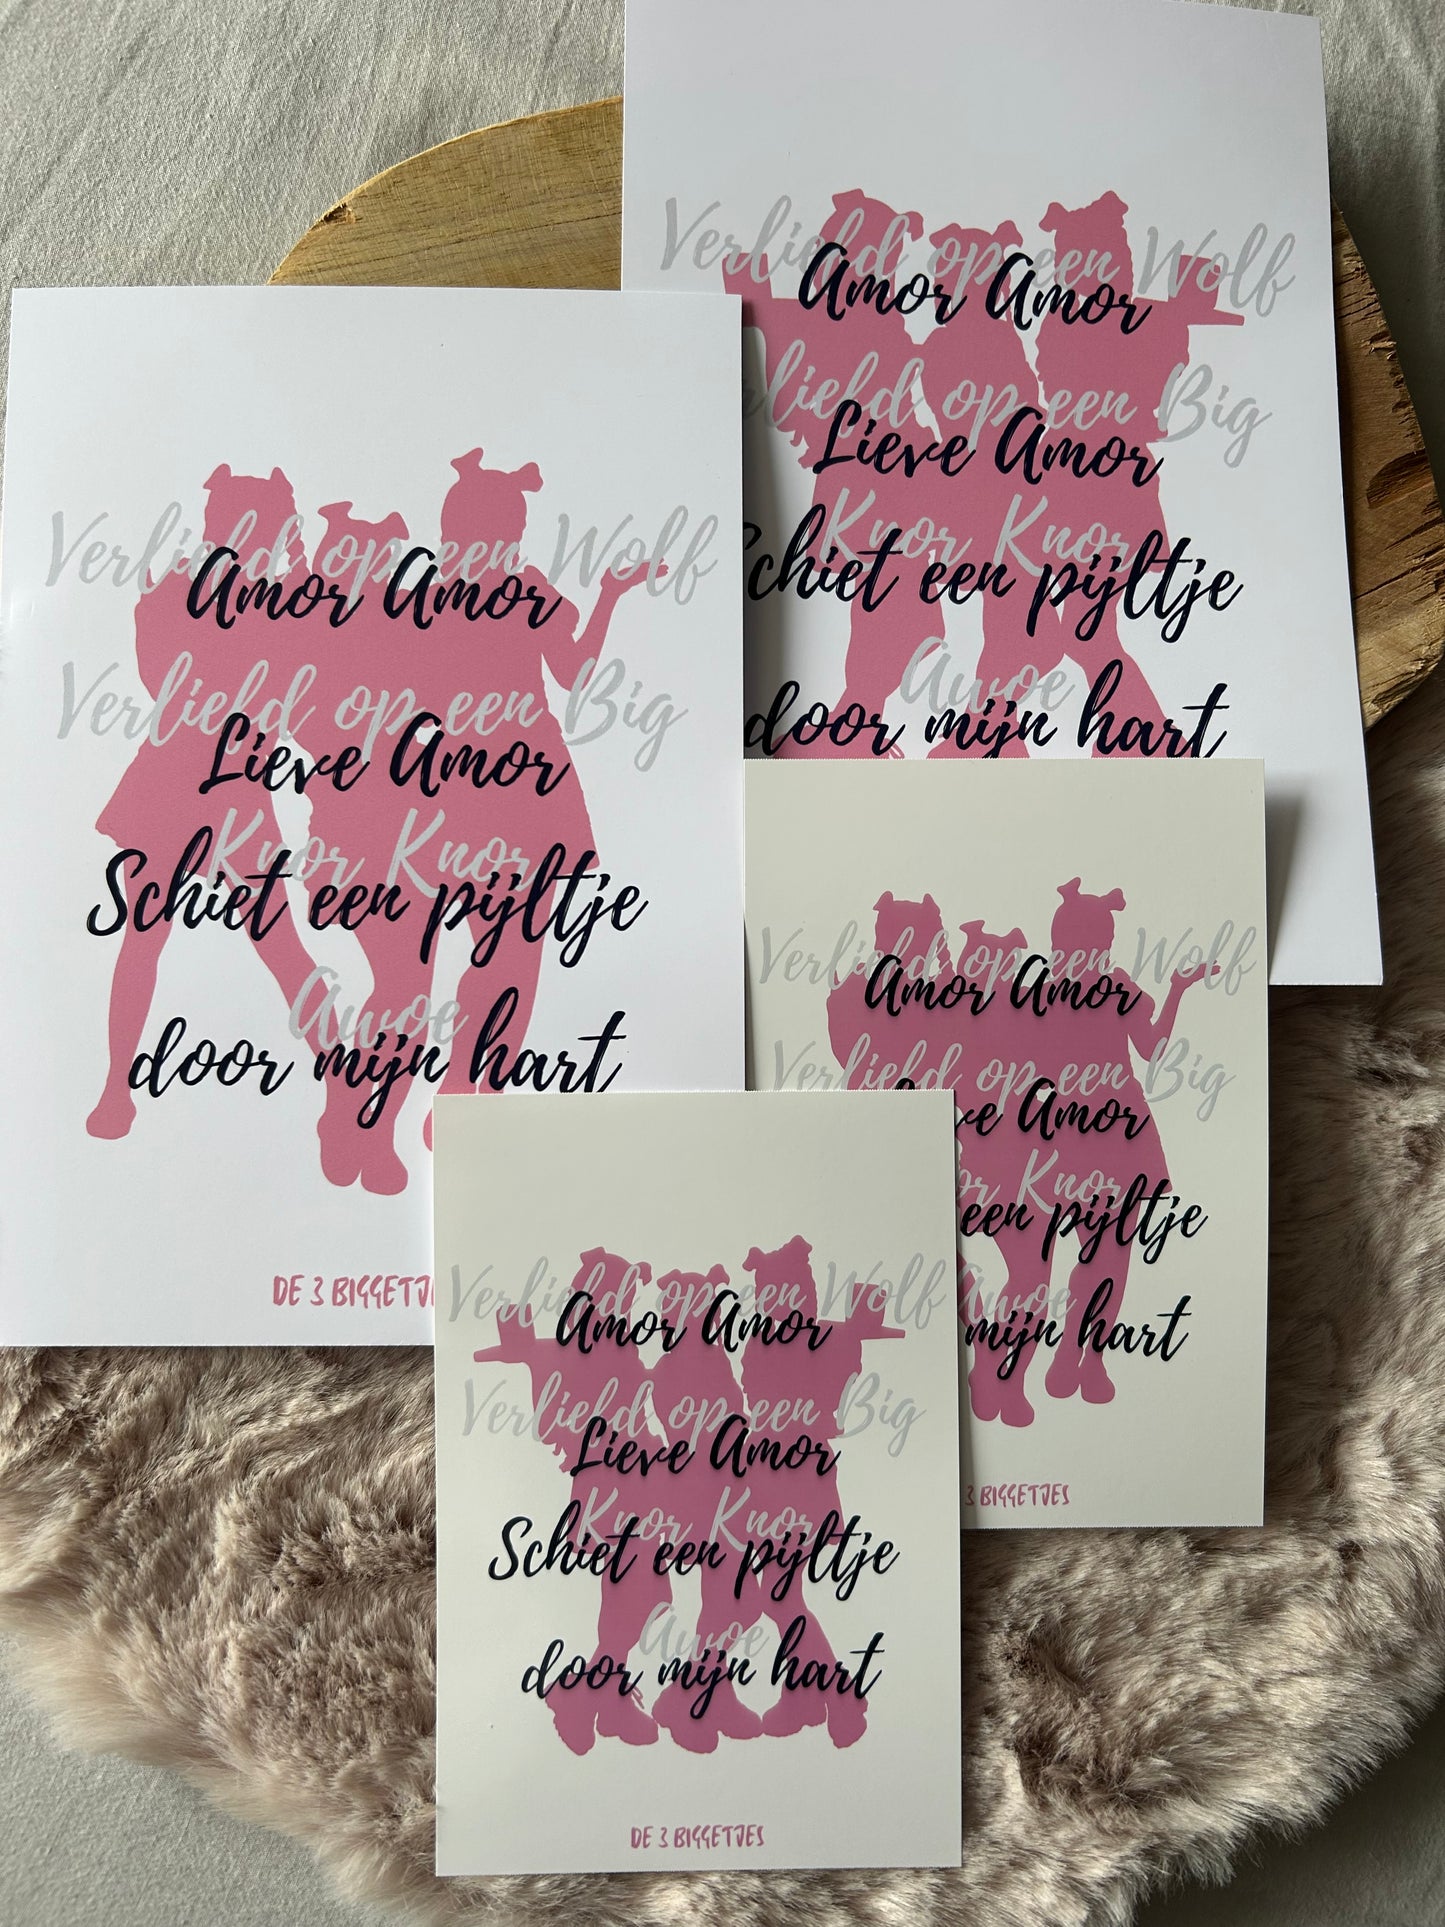 Verliefd op een Wolf
Amor Amor
Verliefd op een Big
Lieve Amor
Knor Knor
Schiet een pijltje
Awoe
door mijn hart
Verliefd op een Wolf
Amor Amor
Verliefd op een Big
Lieve Amor
Knor Knor
Schiet een pijltje
Awoe
door mijn hart
DE 3 BIGGETJ
Verliefd op een Wolf
Amor Amor
Verliefd op een Big
Amor
Knor
een pijltje
Awoe
mijn hart
3 BIGGETJES
Verliefd op een Wolf
Amor Amor
Verliefd op een Big
Lieve Amor
Knor Knor
Schiet een pijltje
Awoe
door mijn hart
DE 3 BIGGETJES